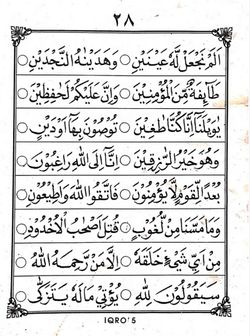 ٢٨
اَلَمْ نَجْعَلْ لَّهٗ عَيْنَيْنِ ○ وَهَدَيْنٰهُ النَّجْدَيْنِ ○
طَآئِفَةٌ مِّنَ الْمُؤْمِنِيْنَ ○ وَاِنَّ عَلَيْكُمْ لَحٰفِظِيْنَ ○
يٰوَيْلَنَآ اِنَّا كُنَّا طٰغِيْنَ ○ تُوْصُوْنَ بِهَآ اَوْ دَيْنٍ ○
وَهُوَ خَيْرُ الرّٰزِقِيْنَ ○ اِنَّآ اِلَى اللّٰهِ رَاغِبُوْنَ ○
بُعْدًا لِّلْقَوْمِ لَا يُؤْمِنُوْنَ ○ فَاتَّقُوا اللّٰهَ وَاَطِيْعُوْنِ ○
وَمَا مَسَّنَا مِنْ لُّغُوْبٍ ○ قُتِلَ اَصْحٰبُ الْاُخْدُوْدِ ○
مِنْ اَيِّ شَيْءٍ خَلَقَهٗ ○ اِلَّا مَنْ رَّحِمَهُ اللّٰهُ ○
سَيَقُوْلُوْنَ لِلّٰهِ ○ يُؤْتِيْ مَالَهٗ يَتَزَكّٰى ○
IQRO' 5